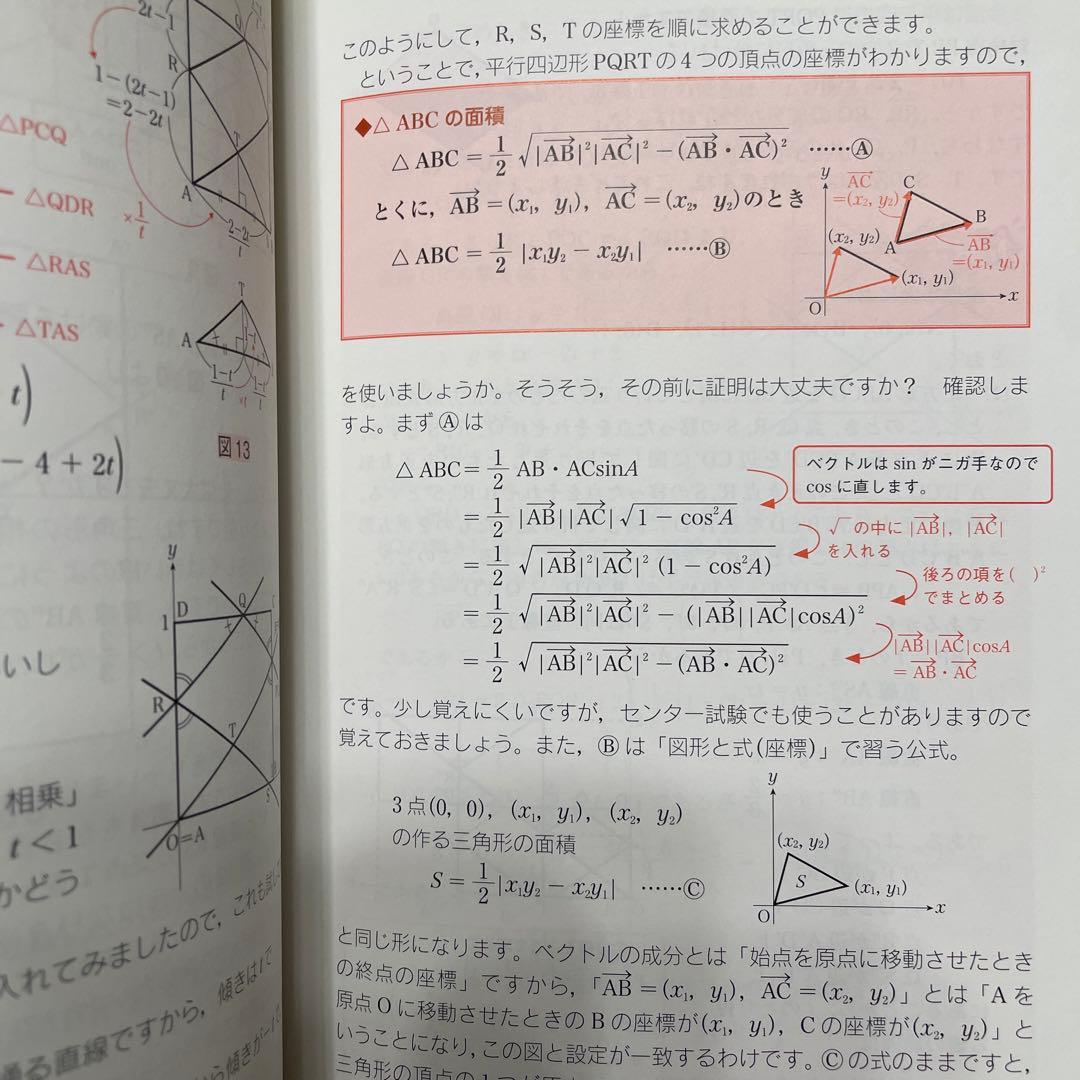 2t−1
R
Q
1−(2t−1)
=2−2t
T
A
△PCQ
− △QDR
×1/t
(2−2t)/t
− △RAS
− △TAS
T
A
(1−t)/t
(1−t)/t
×t
図13
t)
− 4 + 2t)
y
D
Q
1
R
T
O=A
いし
相乗」
t < 1
かどう
入れてみましたので，これも試し
直線ですから，傾きはtで
このようにして，R，S，Tの座標を順に求めることができます。
ということで，平行四辺形PQRTの4つの頂点の座標がわかりますので，
◆△ABCの面積
△ABC = 1/2 √(|AB→|²|AC→|² − (AB→・AC→)²) ……Ⓐ
とくに，AB→ = (x₁, y₁)，AC→ = (x₂, y₂)のとき
△ABC = 1/2 |x₁y₂ − x₂y₁| ……Ⓑ
y
AC→
=(x₂, y₂)
C
B
(x₂, y₂)
A
AB→
=(x₁, y₁)
(x₁, y₁)
O
x
を使いましょうか。そうそう，その前に証明は大丈夫ですか？　確認しま
すよ。まずⒶは
△ABC = 1/2 AB・ACsinA
ベクトルはsinがニガ手なので
cosに直します。
= 1/2 |AB→||AC→|√(1 − cos²A)
√ の中に |AB→|，|AC→|
を入れる
= 1/2 √(|AB→|²|AC→|² (1 − cos²A))
後ろの項を(　)²
でまとめる
= 1/2 √(|AB→|²|AC→|² − (|AB→||AC→|cosA)²)
|AB→||AC→|cosA
= AB→・AC→
= 1/2 √(|AB→|²|AC→|² − (AB→・AC→)²)
です。少し覚えにくいですが，センター試験でも使うことがありますので
覚えておきましょう。また，Ⓑは「図形と式(座標)」で習う公式。
3点(0, 0)，(x₁, y₁)，(x₂, y₂)
の作る三角形の面積
S = 1/2 |x₁y₂ − x₂y₁| ……Ⓒ
y
(x₂, y₂)
S
(x₁, y₁)
O
x
と同じ形になります。ベクトルの成分とは「始点を原点に移動させたとき
の終点の座標」ですから，「AB→ = (x₁, y₁)，AC→ = (x₂, y₂)」とは「Aを
原点Oに移動させたときのBの座標が(x₁, y₁)，Cの座標が(x₂, y₂)」と
いうことになり，この図と設定が一致するわけです。Ⓒの式のままですと，
三角形の頂点の1つが